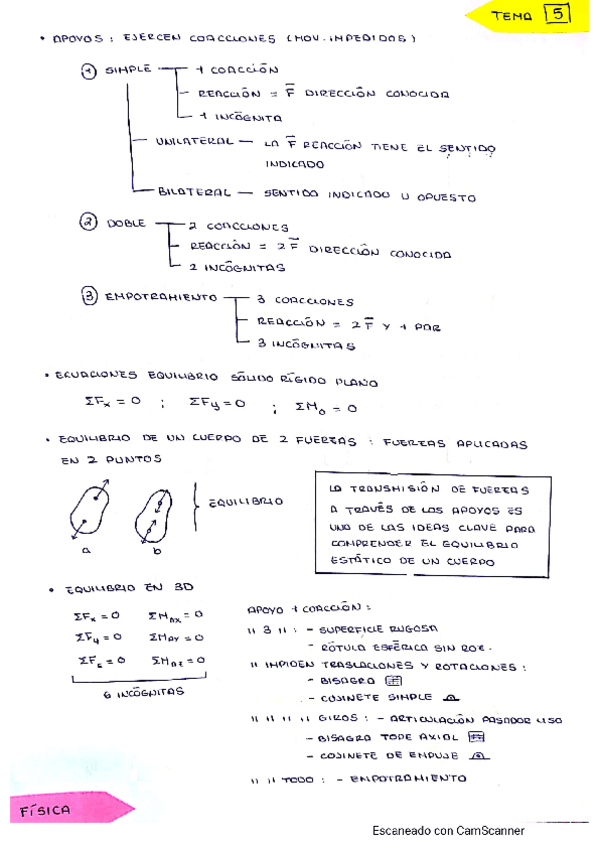 TEMA 5
• APOYOS : EJERCEN COACCIONES (MOV. IMPEDIDOS)
① SIMPLE — 1 COACCIÓN
— REACCIÓN = F DIRECCIÓN CONOCIDA
— 1 INCÓGNITA
UNILATERAL — LA F REACCIÓN TIENE EL SENTIDO
INDICADO
BILATERAL — SENTIDO INDICADO U OPUESTO
② DOBLE — 2 COACCIONES
— REACCIÓN = 2 F DIRECCIÓN CONOCIDA
— 2 INCÓGNITAS
③ EMPOTRAMIENTO — 3 COACCIONES
— REACCIÓN = 2 F Y 1 PAR
— 3 INCÓGNITAS
• ECUACIONES EQUILIBRIO SÓLIDO RÍGIDO PLANO
ΣFx = 0 ; ΣFy = 0 ; ΣMo = 0
• EQUILIBRIO DE UN CUERPO DE 2 FUERZAS : FUERZAS APLICADAS
EN 2 PUNTOS
EQUILIBRIO
a b
LA TRANSMISIÓN DE FUERZAS
A TRAVÉS DE LOS APOYOS ES
UNA DE LAS IDEAS CLAVE PARA
COMPRENDER EL EQUILIBRIO
ESTÁTICO DE UN CUERPO
• EQUILIBRIO EN 3D
ΣFx = 0 ΣMAX = 0
ΣFy = 0 ΣMAY = 0
ΣFz = 0 ΣMAZ = 0
6 INCÓGNITAS
APOYO 1 COACCIÓN :
" 3 " : - SUPERFICIE RUGOSA
- RÓTULA ESFÉRICA SIN ROZ.
" IMPIDEN TRASLACIONES Y ROTACIONES :
- BISAGRA
- COJINETE SIMPLE
" " " " GIROS : - ARTICULACIÓN PASADOR LISO
- BISAGRA TOPE AXIAL
- COJINETE DE EMPUJE
" " TODO : - EMPOTRAMIENTO
FÍSICA
Escaneado con CamScanner